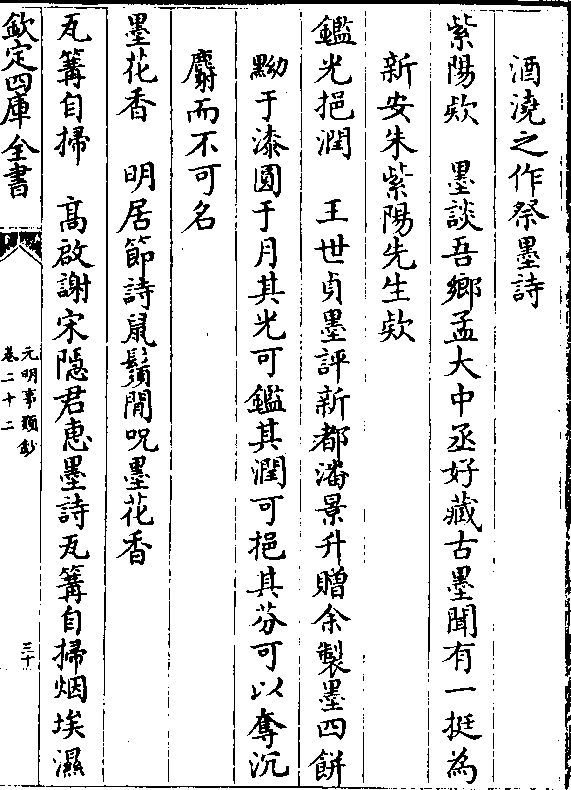 酒澆之作祭墨詩
紫陽欵　墨談吾鄉孟大中丞好藏古墨聞有一挺為
新安朱紫陽先生欵
鑑光挹潤　王世貞墨評新都潘景升贈余製墨四餅
黝于漆圓于月其光可鑑其潤可挹其芬可以奪沉
麝而不可名
墨花香　明居節詩鼠鬚閒呪墨花香
瓦篝自掃　高啟謝宋隱君惠墨詩瓦篝自掃烟埃濕
欽定四庫全書
元明事類鈔
卷二十二
三十